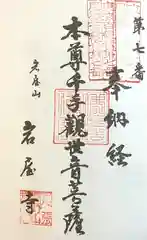 第七番
奉納経
本尊千手観世音菩薩
岩屋山
岩屋寺